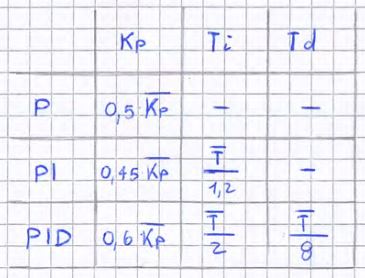 Kp Ti Td
P 0,5 K̅p̅ – –
PI 0,45 K̅p̅ T̅/1,2 –
PID 0,6 K̅p̅ T̅/2 T̅/8